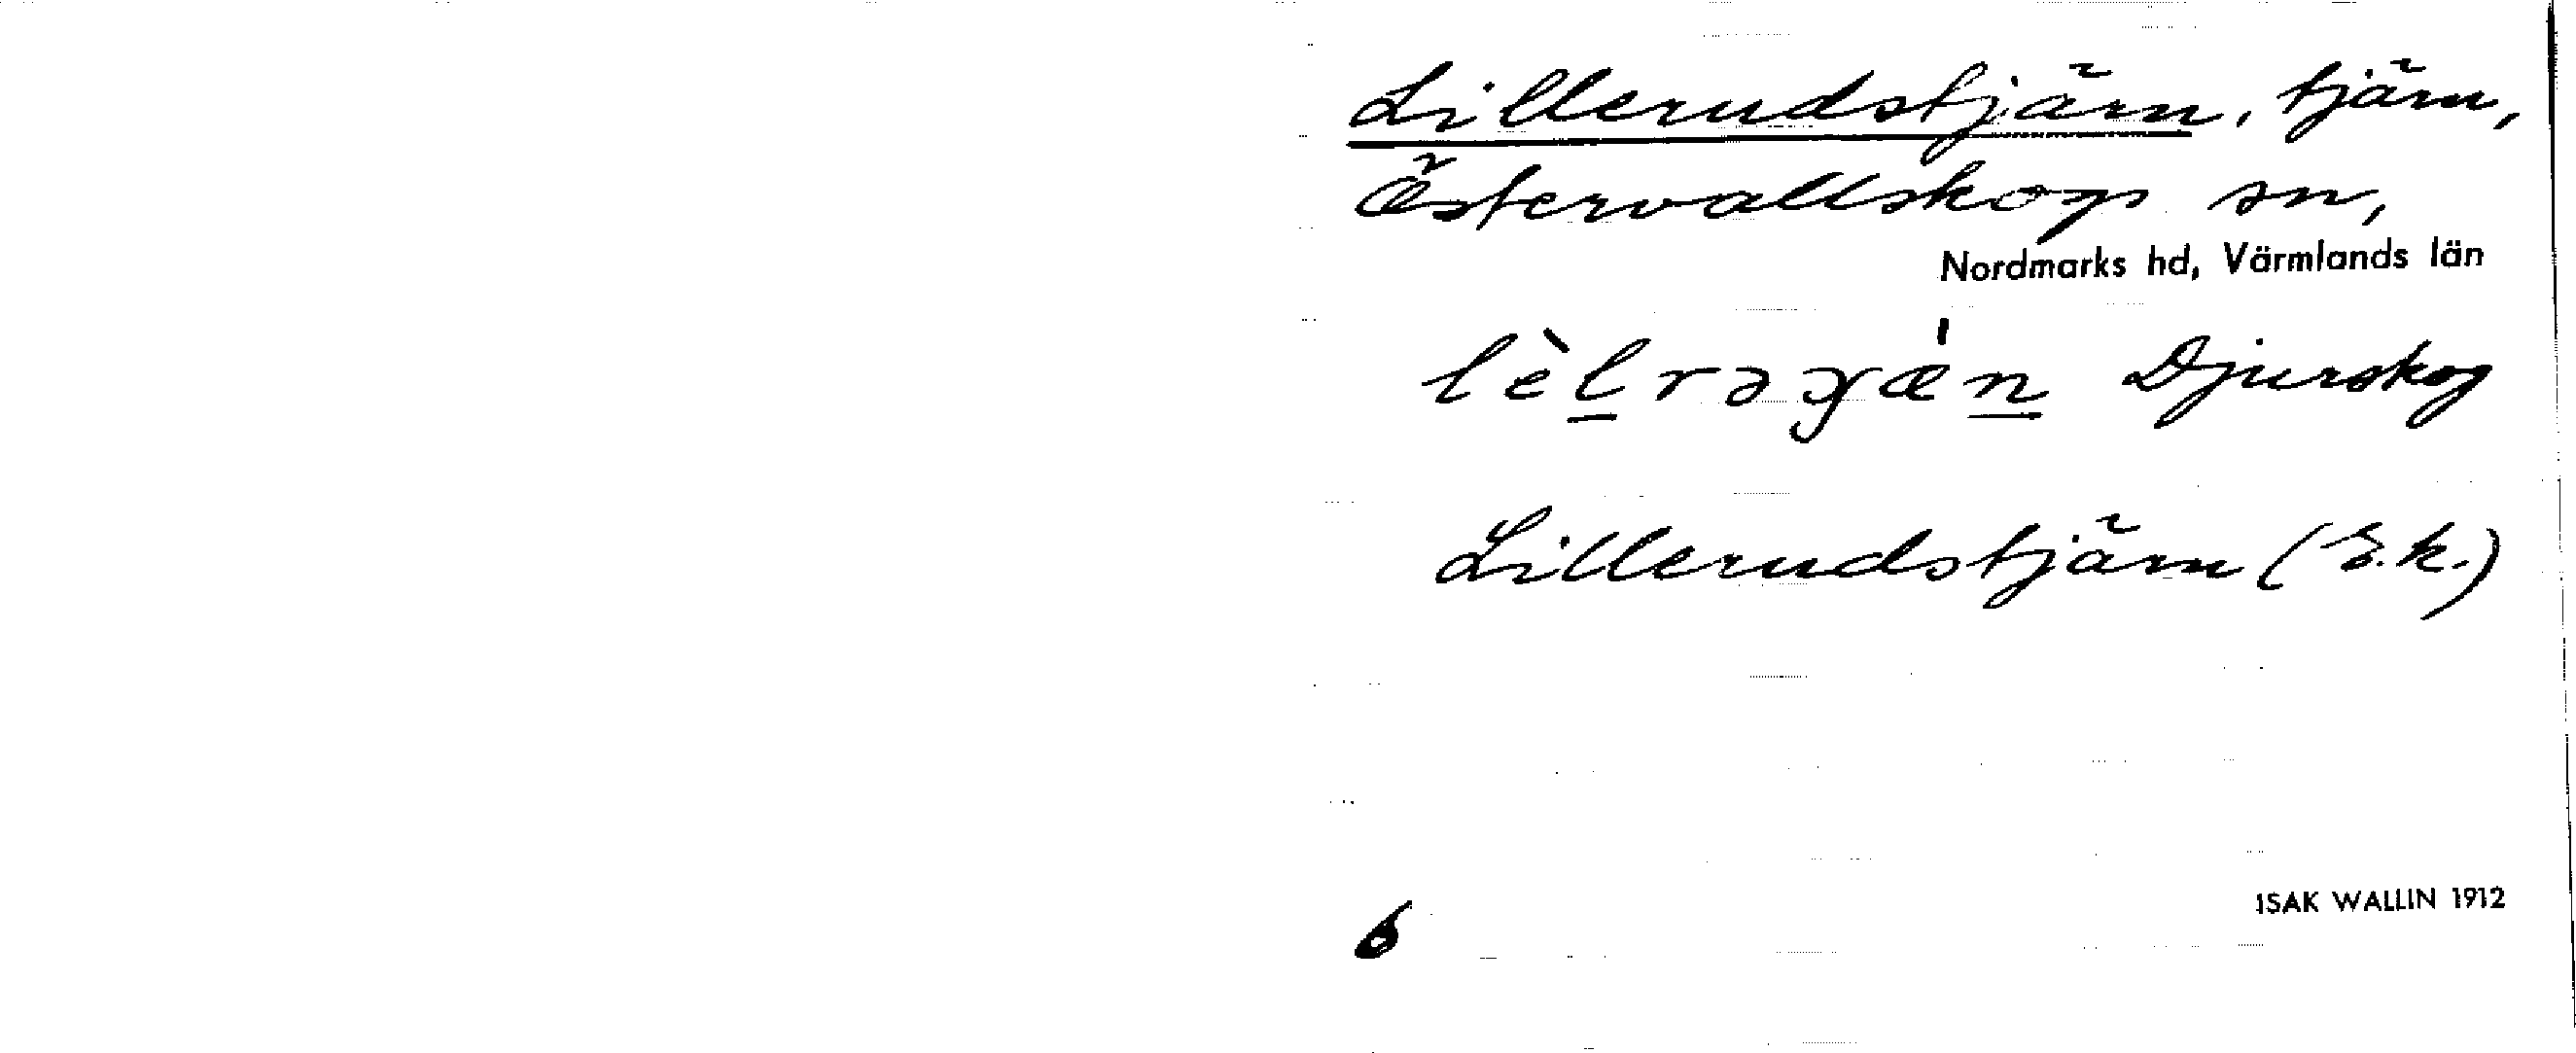 Lillerudstjärn, tjärn,
Östervallskogs sn,
Nordmarks hd, Värmlands län
lèl̠rəɣæ̀n̠ Djurskog
Lillerudstjärn (E.k.)
6
ISAK WALLIN 1912